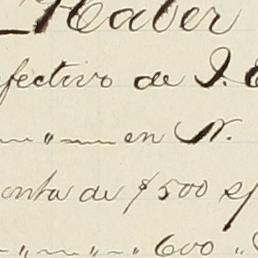 Haber
fectivo de J. E
" en N.
onta de $500 s/
" " 600 "